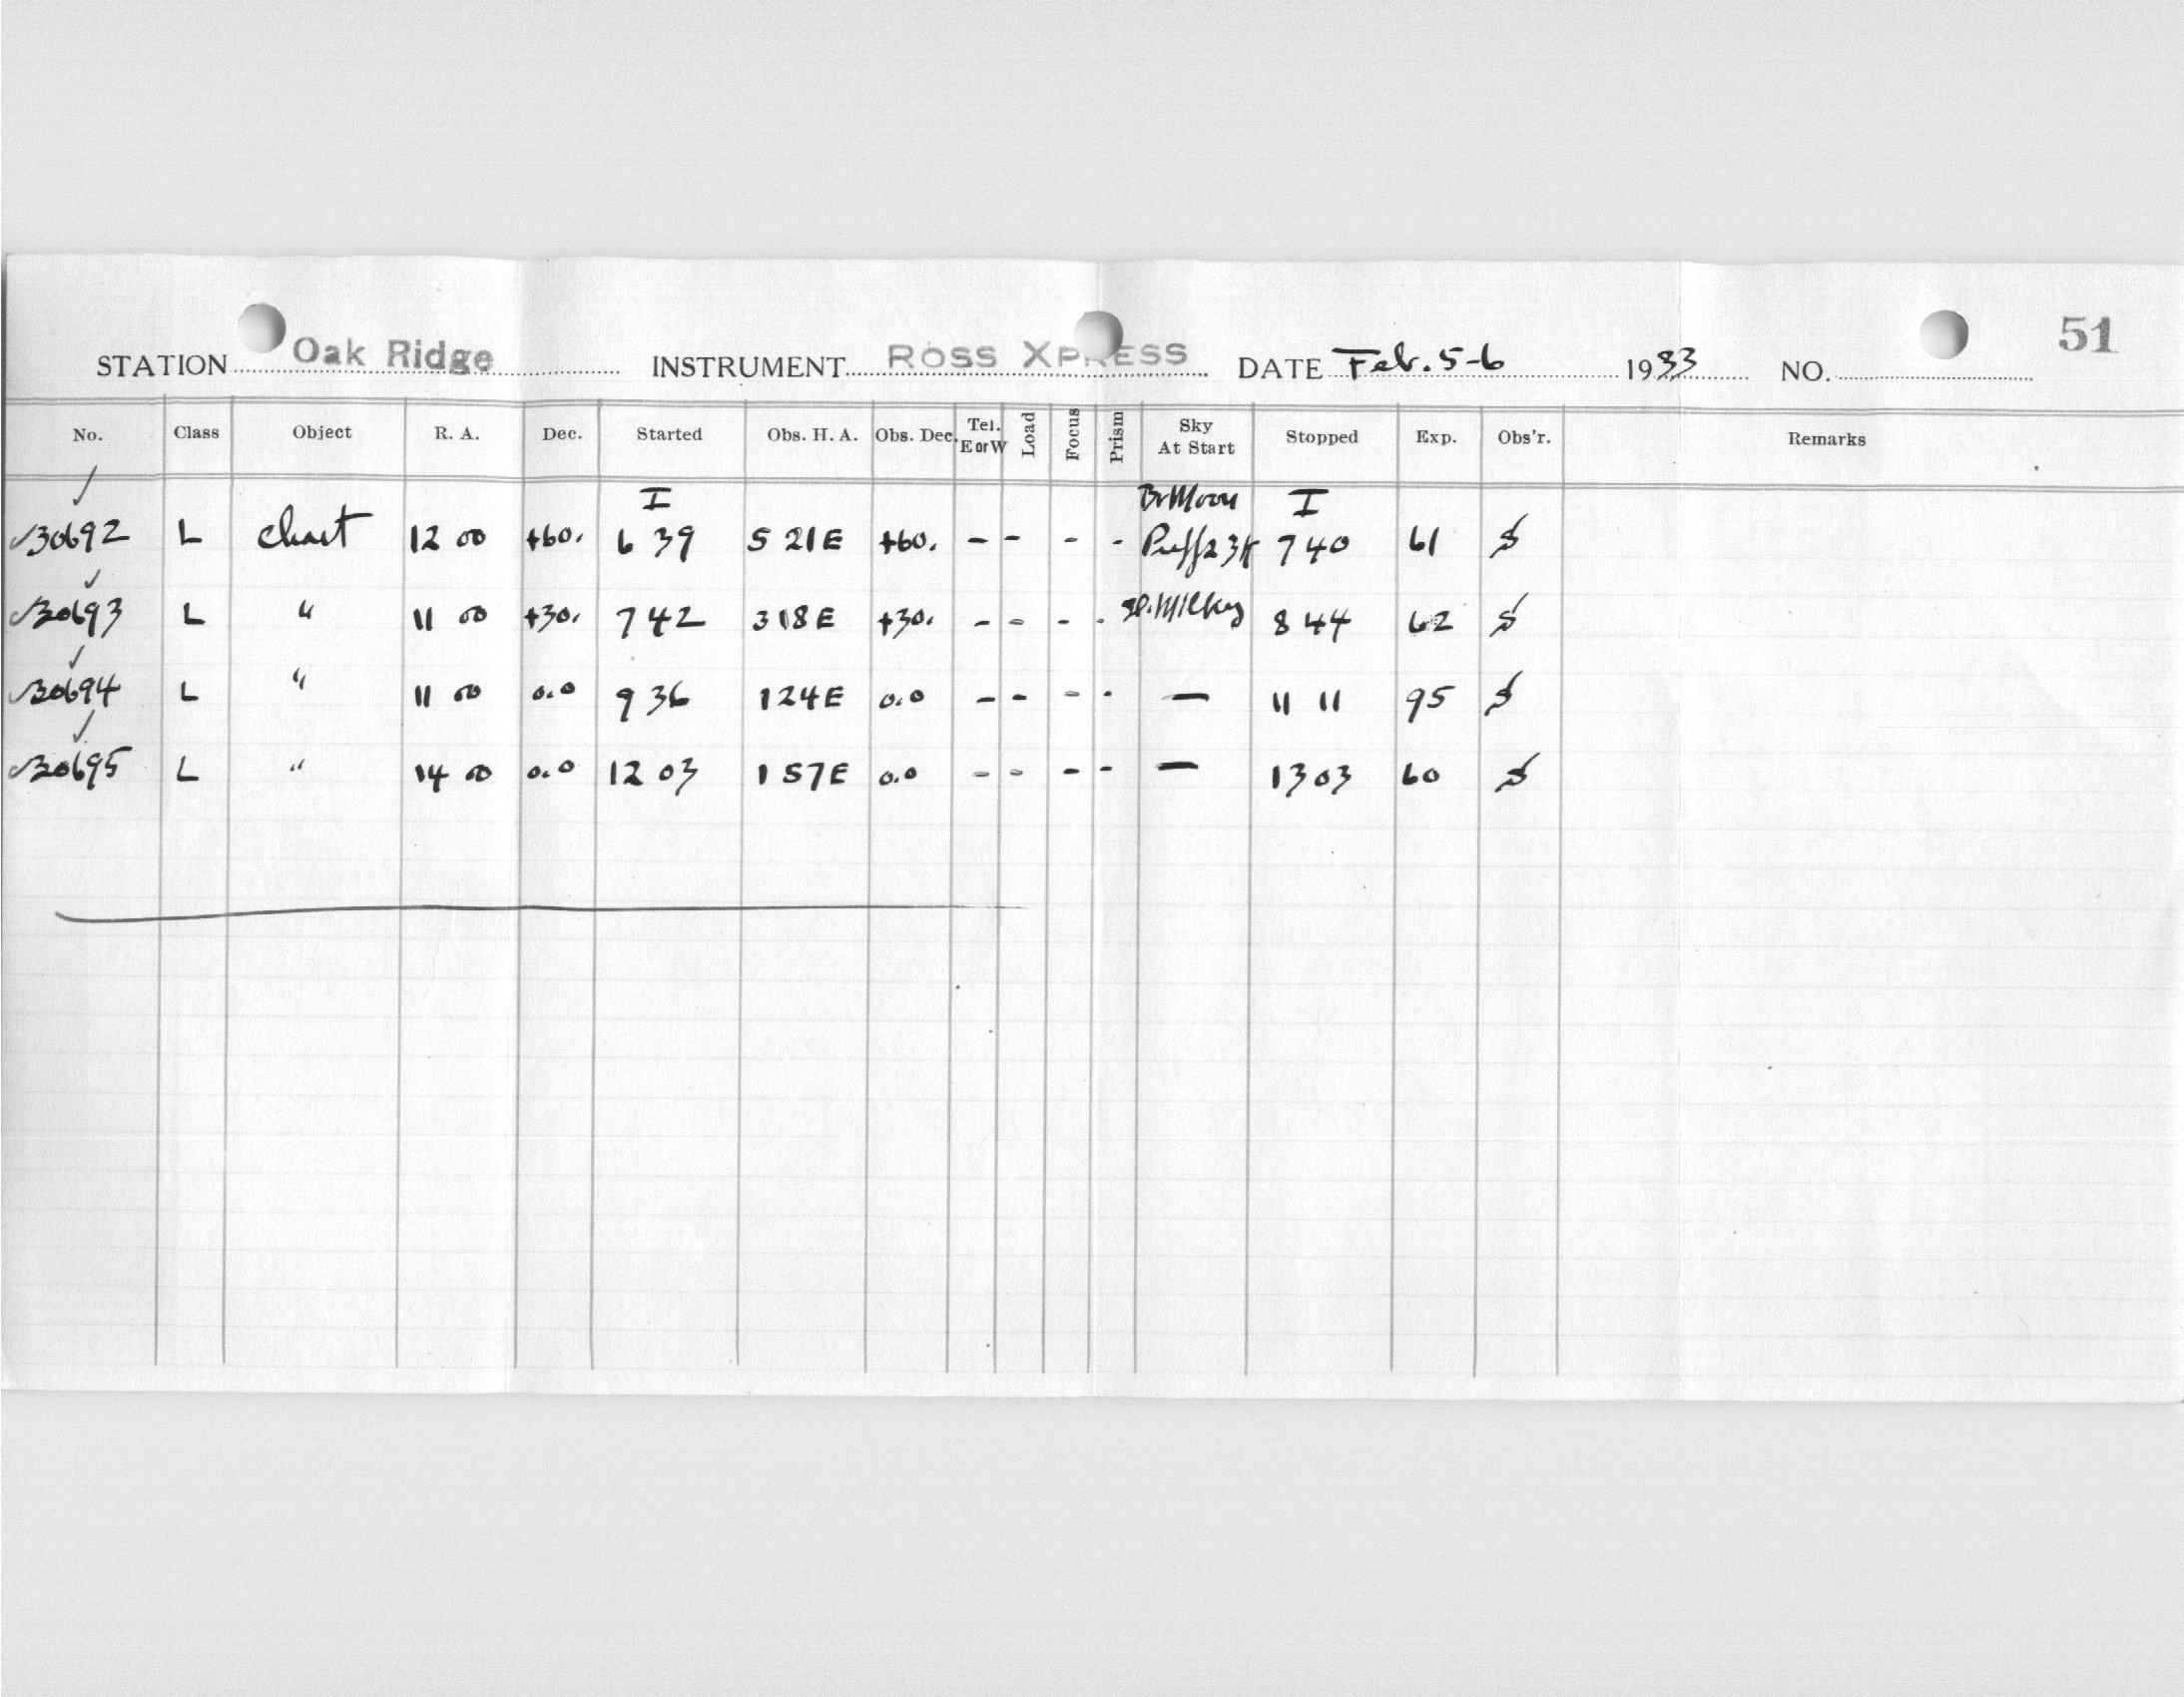 51
STATION Oak Ridge INSTRUMENT ROSS XPRESS DATE Feb. 5-6 1933 NO.
No. Class Object R. A. Dec. Started Obs. H. A. Obs. Dec. Tel. E or W Load Focus Prism Sky At Start Stopped Exp. Obs'r. Remarks
I Br Moon I
✓30692 L Chart 12 00 +60. 6 39 5 21 E +60. - - - - 7 40 61 S
✓30693 L " 11 00 +30. 7 42 3 18 E +30. - - - - Milky 8 44 62 S
✓30694 L " 11 00 0.0 9 36 1 24 E 0.0 - - - - — 11 11 95 S
✓30695 L " 14 00 0.0 12 03 1 57 E 0.0 - - - - — 13 03 60 S